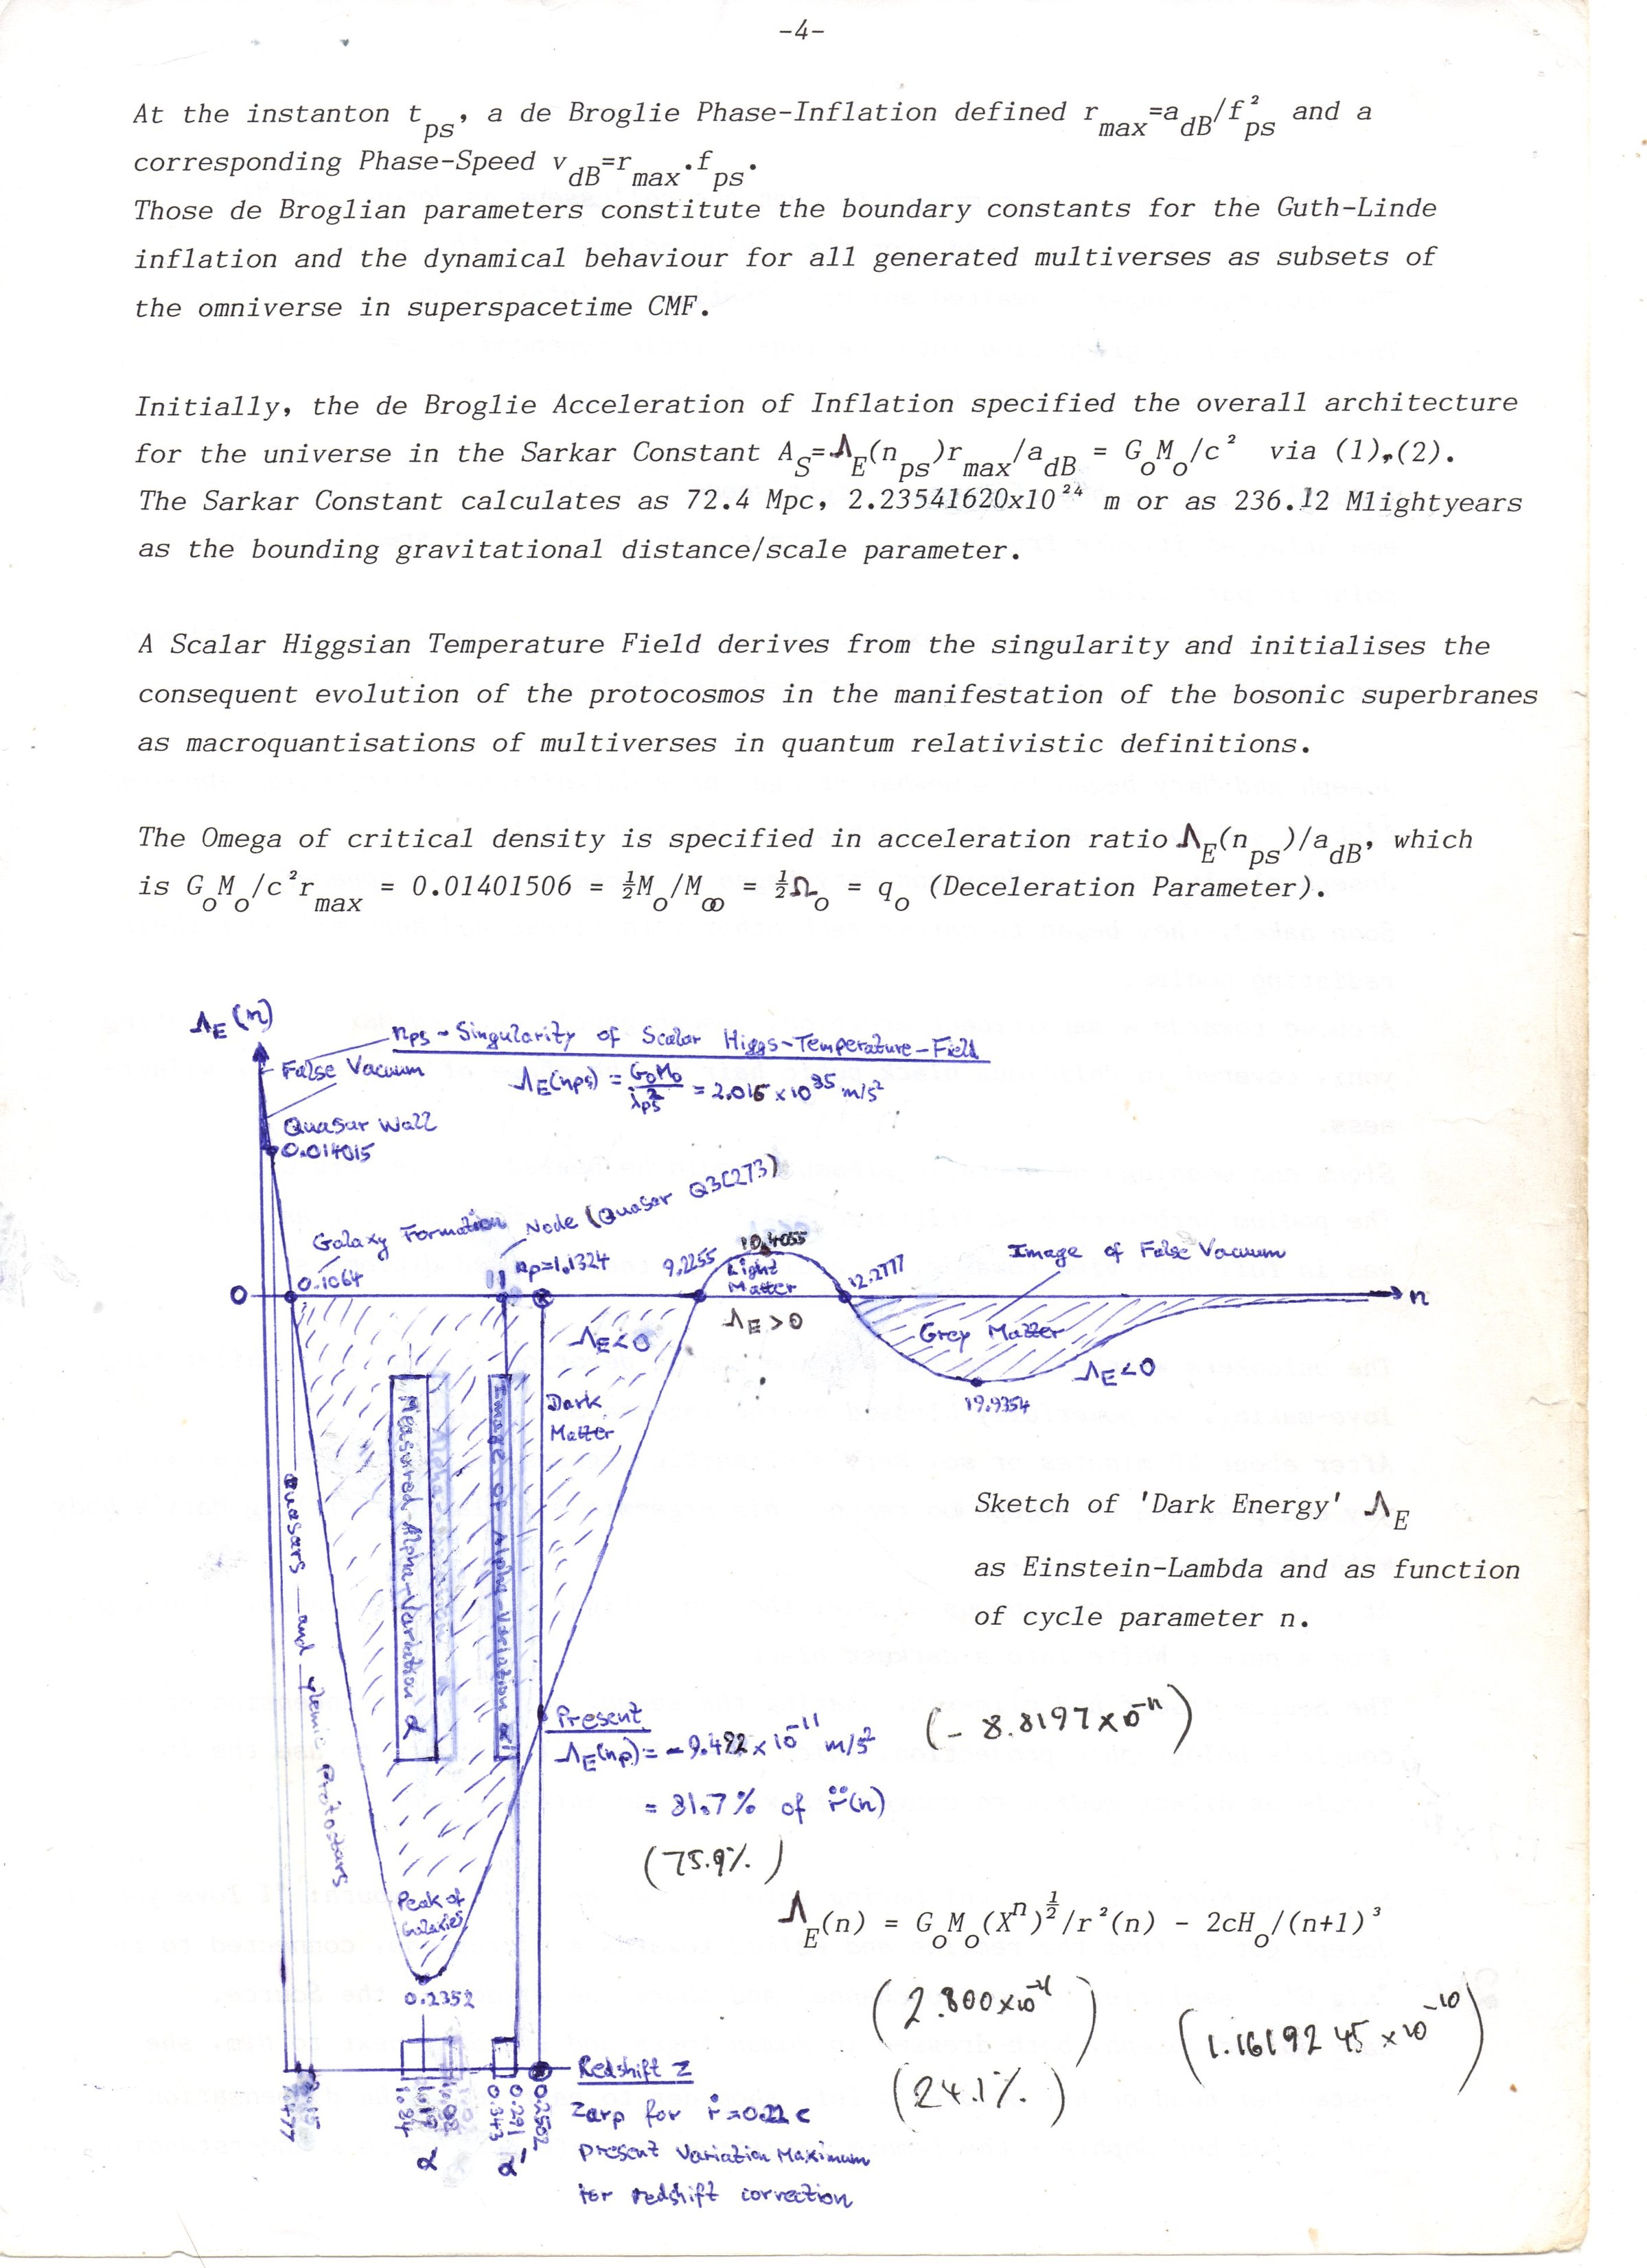 -4-
At the instanton t_ps, a de Broglie Phase-Inflation defined r_max=a_dB/f²_ps and a
corresponding Phase-Speed v_dB=r_max.f_ps.
Those de Broglian parameters constitute the boundary constants for the Guth-Linde
inflation and the dynamical behaviour for all generated multiverses as subsets of
the omniverse in superspacetime CMF.
Initially, the de Broglie Acceleration of Inflation specified the overall architecture
for the universe in the Sarkar Constant A_S=Λ_E(n_ps)r_max/a_dB = G_oM_o/c² via (1),(2).
The Sarkar Constant calculates as 72.4 Mpc, 2.23541620x10²⁴ m or as 236.12 Mlightyears
as the bounding gravitational distance/scale parameter.
A Scalar Higgsian Temperature Field derives from the singularity and initialises the
consequent evolution of the protocosmos in the manifestation of the bosonic superbranes
as macroquantisations of multiverses in quantum relativistic definitions.
The Omega of critical density is specified in acceleration ratio Λ_E(n_ps)/a_dB, which
is G_oM_o/c²r_max = 0.01401506 = ½M_o/M_∞ = ½Ω_o = q_o (Deceleration Parameter).
Λ_E(n)
nps - Singularity of Scalar Higgs-Temperature-Field
False Vacuum
Λ_E(nps) = G_oM_o/λps² = 2.015 x 10⁸⁵ m/s²
Quasar Wall
0.014015
Galaxy Formation
Node (Quasar Q3C273)
0.1064
np=1.1324
9.2255
10.4055
Light
Matter
12.2777
Image of False Vacuum
0
n
Λ_E<0
Λ_E>0
Grey Matter
Λ_E<0
19.9354
Dark
Matter
Measured-Alpha-Variation α
Image of Alpha-Variation α'
Quasars and
Protostars
Sketch of 'Dark Energy' Λ_E
as Einstein-Lambda and as function
of cycle parameter n.
Present
Λ_E(np) = -9.492 x 10⁻¹¹ m/s²
(-8.8197x10⁻¹¹)
= 81.7% of r̈(n)
(75.9%)
Peak of
Galaxies
0.2352
Λ_E(n) = G_oM_o(Xⁿ)^½/r²(n) - 2cH_o/(n+1)³
(2.800x10⁻¹¹)
(1.1619245 x 10⁻¹⁰)
(24.1%)
Redshift z
7.477
1.84
1.19
1.08
0.343
0.291
0.2502
α
α'
zarp for ṙ=0.22c
present Variation Maximum
for redshift correction